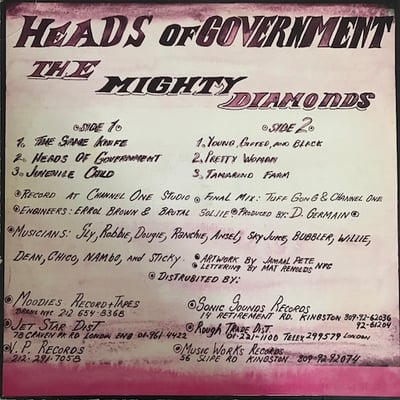 HEADS OF GOVERNMENT
THE MIGHTY DIAMONDS
SIDE 1
1. THE SAME KNIFE
2. HEADS OF GOVERNMENT
3 JUVENILE CHILD
SIDE 2
1. YOUNG, GIFTED, AND BLACK
2. PRETTY WOMAN
3. TAMARIND FARM
RECORD AT CHANNEL ONE STUDIO FINAL MIX: TUFF GONG & CHANNEL ONE
ENGINEERS: ERROL BROWN & BRUTAL SOLJIE PRODUCED BY: D. GERMAIN
MUSICIANS: SLY, ROBBIE, DOUGIE, RANCHIE, ANSEL, SKY JUKE, BUBBLER, WILLIE,
DEAN, CHICO, NAMBO, AND STICKY.
ARTWORK BY JAMAAL PETE
LETTERING BY MAT REYNOLDS NYC
DISTRUBITED BY:
MOODIES RECORD & TAPES
BRONX NYC 212 654-8368
JET STAR DIST
78 CRAVEN PK RD LONDON ENG 01-961-4422
V.P. RECORDS
212-291-7058
SONIC SOUNDS RECORDS
14 RETIREMENT RD. KINGSTON 809-92-62036
92-61204
ROUGH TRADE DIST.
01-221-1100 TELEX 299579 LONDON
MUSIC WORKS RECORDS
56 SLIPE RD KINGSTON 809-92-92074